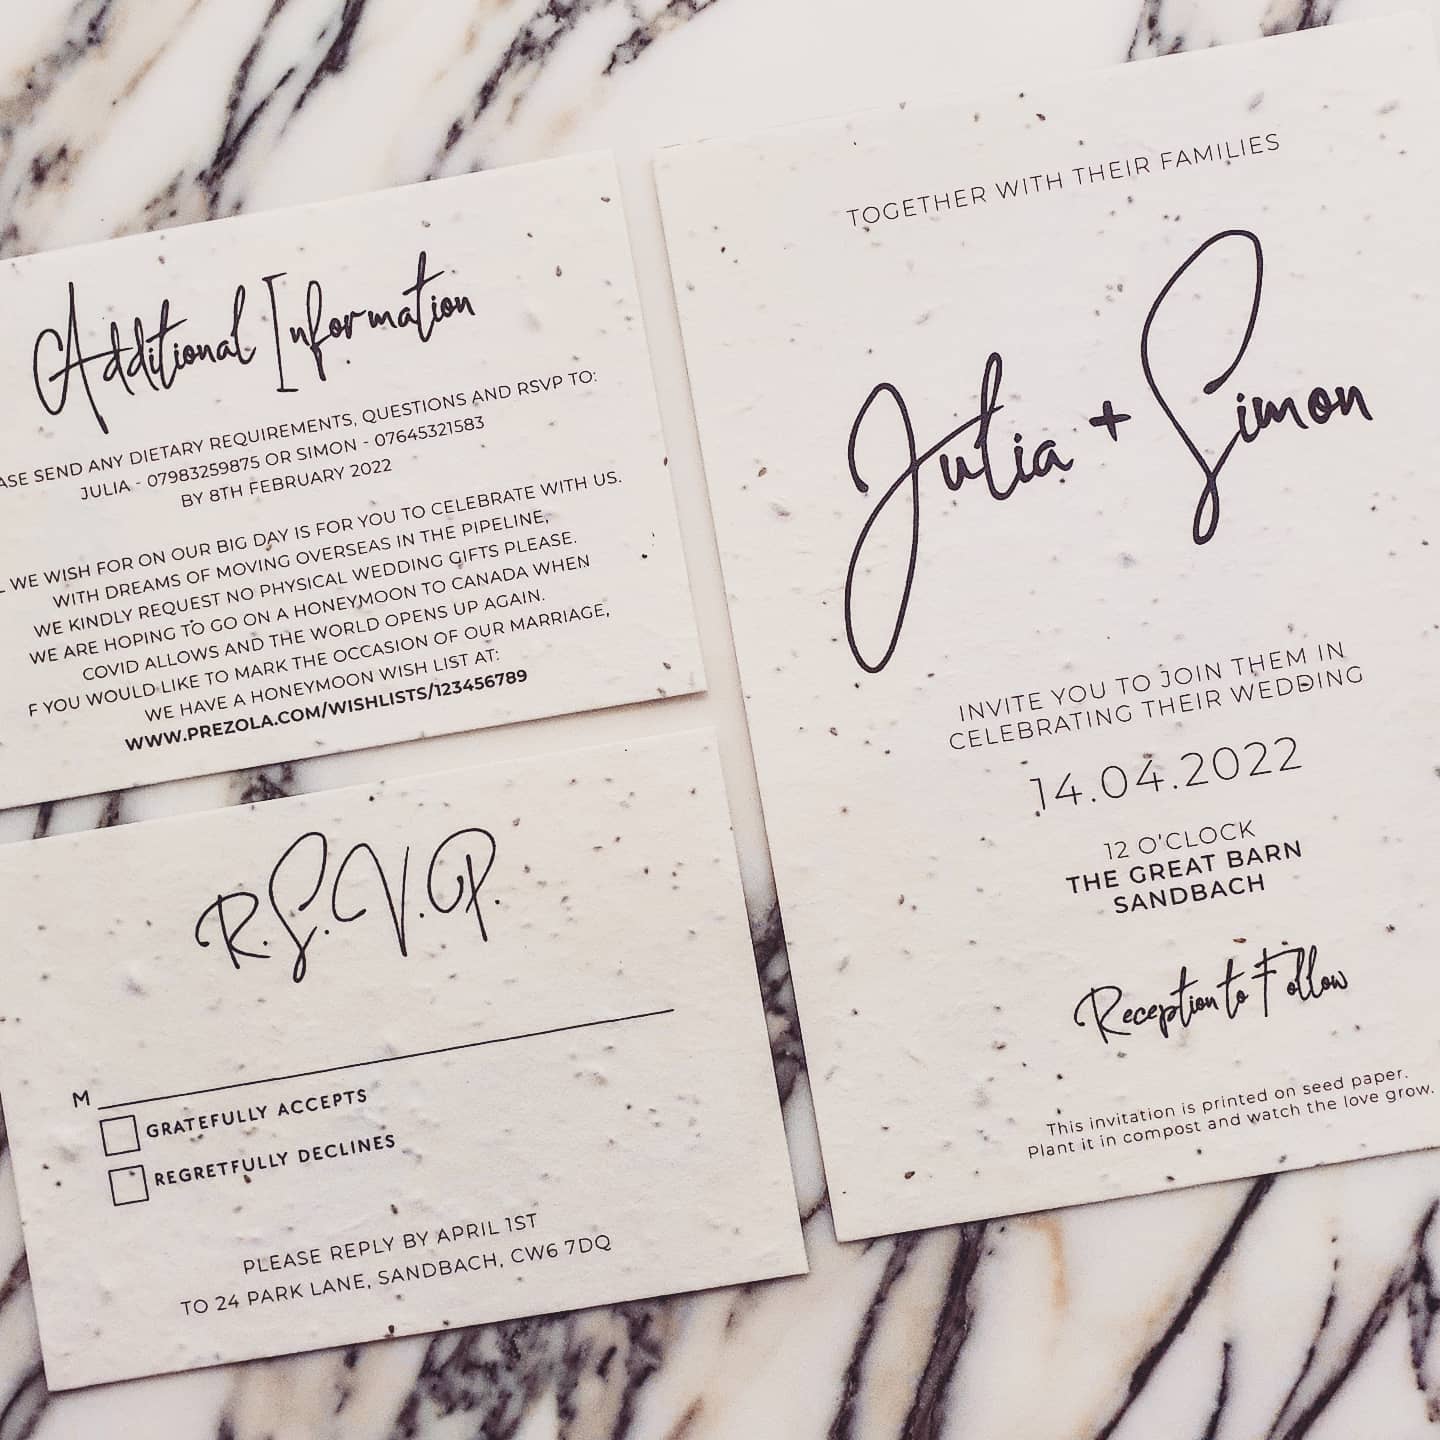 Additional Information
SEND ANY DIETARY REQUIREMENTS, QUESTIONS AND RSVP TO:
JULIA - 07983259875 OR SIMON - 07645321583
BY 8TH FEBRUARY 2022
WE WISH FOR ON OUR BIG DAY IS FOR YOU TO CELEBRATE WITH US.
WITH DREAMS OF MOVING OVERSEAS IN THE PIPELINE,
WE KINDLY REQUEST NO PHYSICAL WEDDING GIFTS PLEASE.
WE ARE HOPING TO GO ON A HONEYMOON TO CANADA WHEN
COVID ALLOWS AND THE WORLD OPENS UP AGAIN.
F YOU WOULD LIKE TO MARK THE OCCASION OF OUR MARRIAGE,
WE HAVE A HONEYMOON WISH LIST AT:
WWW.PREZOLA.COM/WISHLISTS/123456789
R.S.V.P.
M
GRATEFULLY ACCEPTS
REGRETFULLY DECLINES
PLEASE REPLY BY APRIL 1ST
TO 24 PARK LANE, SANDBACH, CW6 7DQ
TOGETHER WITH THEIR FAMILIES
Julia + Simon
INVITE YOU TO JOIN THEM IN
CELEBRATING THEIR WEDDING
14.04.2022
12 O'CLOCK
THE GREAT BARN
SANDBACH
Reception to Follow
This invitation is printed on seed paper.
Plant it in compost and watch the love grow.